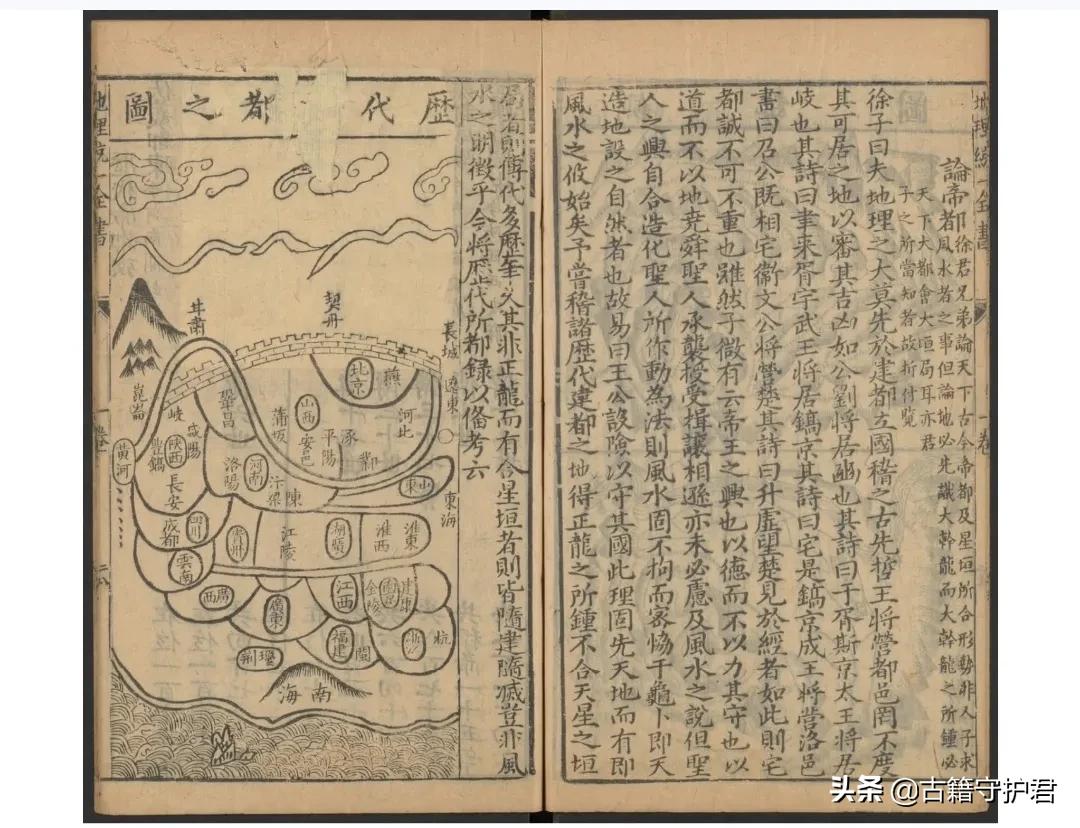 地理統一全書
卷
論帝都 徐君兄弟論天下古今帝都及星垣所合形勢非人子求
者風水者之事但論地必先識大幹龍而大幹龍之所鍾必
天下大都會大垣局耳亦君
子之所當知者故折付覽
徐子曰夫地理之大莫先於建都立國稽之古先哲王將營都邑罔不度
其可居之地以審其吉凶如公劉將居豳也其詩曰于胥斯京太王將居
岐也其詩曰聿來胥宇武王將居鎬京其詩曰宅是鎬京成王將營洛邑
書曰召公既相宅衞文公將營楚其詩曰升虛望楚見於經者如此則宅
都誠不可不重也雖然子微有云帝王之興也以德而不以力其守也以
道而不以地堯舜聖人承襲授受揖讓相遜亦未必慮及風水之說但聖
人之興自合造化聖人所作動為法則風水固不拘而客恊于龜卜即天
造地設之自然者也故易曰王公設險以守其國此理固先天地而有即
風水之攸始矣予嘗稽諸歷代建都之地得正龍之所鍾不合天星之垣
局者則傳代多歷年久其非正龍而有合星垣者則皆隨建隨滅豈非風
水之明徵乎今將歷代所都錄以俻考云
歷代 都之圖
地理統一全書
卷
長城
遼東
東海
契丹
燕
北京
河北
山西
涿
平陽
安邑
蒲坂
鞏昌
岐
咸陽
陝西
豐鎬
長安
洛陽
河南
汴梁
陳
山東
崑崙
黃河
四川
成都
雲南
江陵
湖廣
淮西
淮東
江西
建康
廣西
廣東
福建
閩
浙
杭
南海